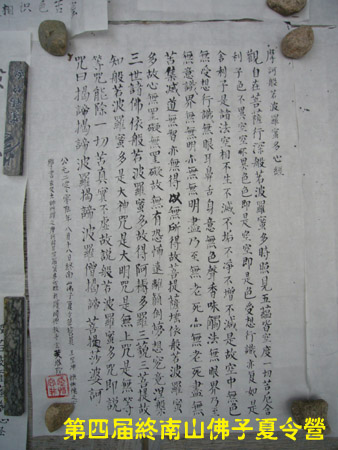 摩訶般若波羅蜜多心經
觀自在菩薩行深般若波羅蜜多時照見五蘊皆空度一切苦厄舍
利子色不異空空不異色色即是空空即是色受想行識亦復如是
舍利子是諸法空相不生不滅不垢不淨不增不減是故空中無色
無受想行識無眼耳鼻舌身意無色聲香味觸法無眼界乃至
無意識界無無明亦無無明盡乃至無老死亦無老死盡無
苦集滅道無智亦無得以無所得故菩提薩埵依般若波羅蜜
多故心無罣礙無罣礙故無有恐怖遠離顛倒夢想究竟涅槃
三世諸佛依般若波羅蜜多故得阿耨多羅三藐三菩提故
知般若波羅蜜多是大神咒是大明咒是無上咒是無等
等咒能除一切苦真實不虛故說般若波羅蜜多咒即說
咒曰揭諦揭諦波羅揭諦波羅僧揭諦菩提薩婆訶
第四届終南山佛子夏令營